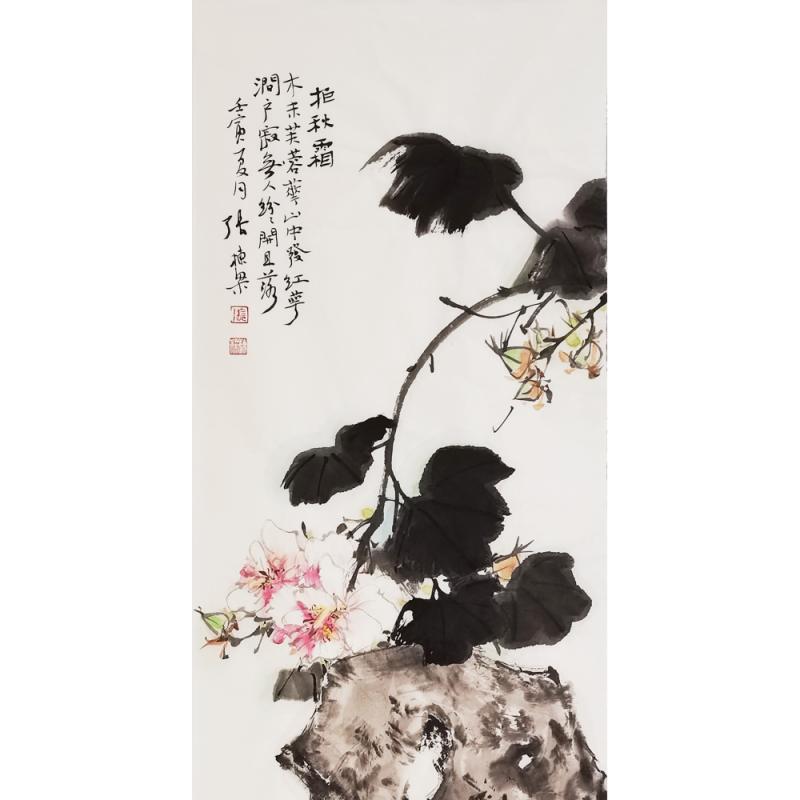 拒秋霜
木末芙蓉蕐山中發紅萼
澗戶寂無人紛〻開且落
壬寅夏月 张